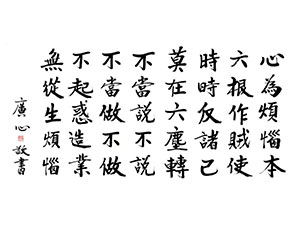 心為煩惱本
六根作賊使
時時反諸己
莫在六塵轉
不當説不説
不當做不做
不起惑造業
無從生煩惱
廣心敬書